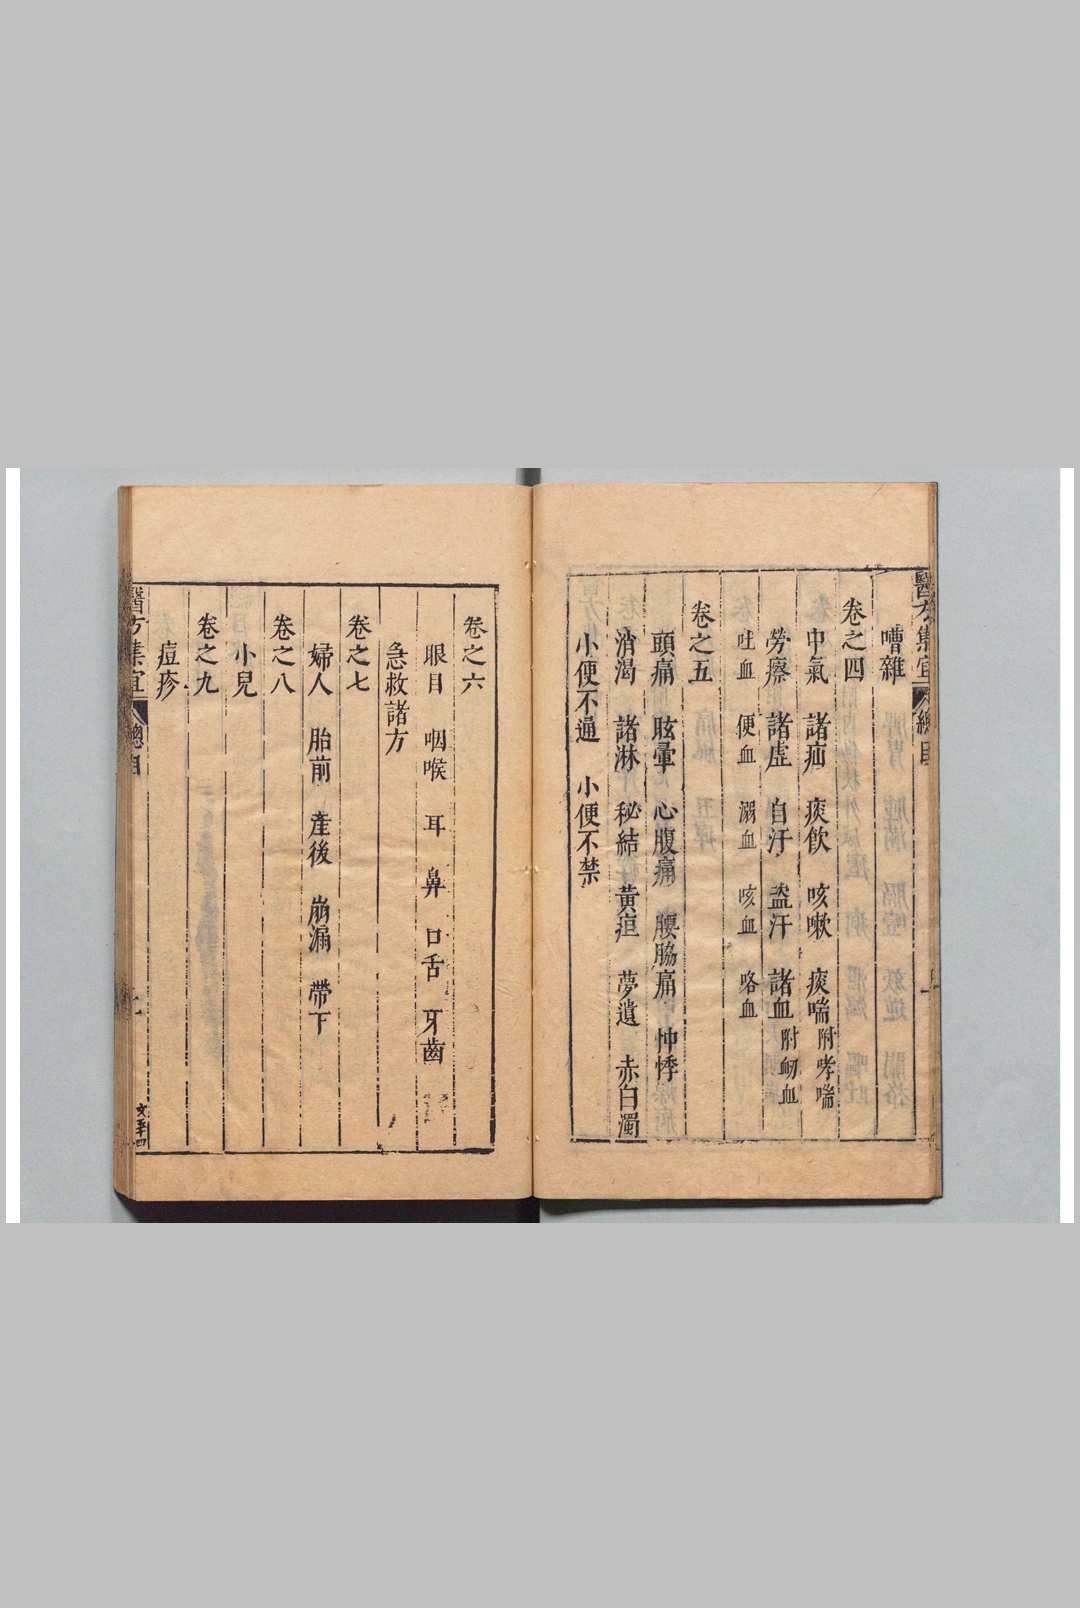 醫方集宜 總目
嘈雜
卷之四
中氣 諸疝 痰飲 咳嗽 痰喘 附哮喘
勞瘵 諸虛 自汗 盜汗 諸血 附衂血
吐血 便血 溺血 咳血 咯血
卷之五
頭痛 眩暈 心腹痛 腰脇痛 忡悸
消渴 諸淋 秘結 黃疸 夢遺 赤白濁
小便不通 小便不禁
卷之六
眼目 咽喉 耳 鼻 口舌 牙齒
急救諸方
卷之七
婦人 胎前 產後 崩漏 帶下
卷之八
小兒
卷之九
痘疹
醫方集宜 總目